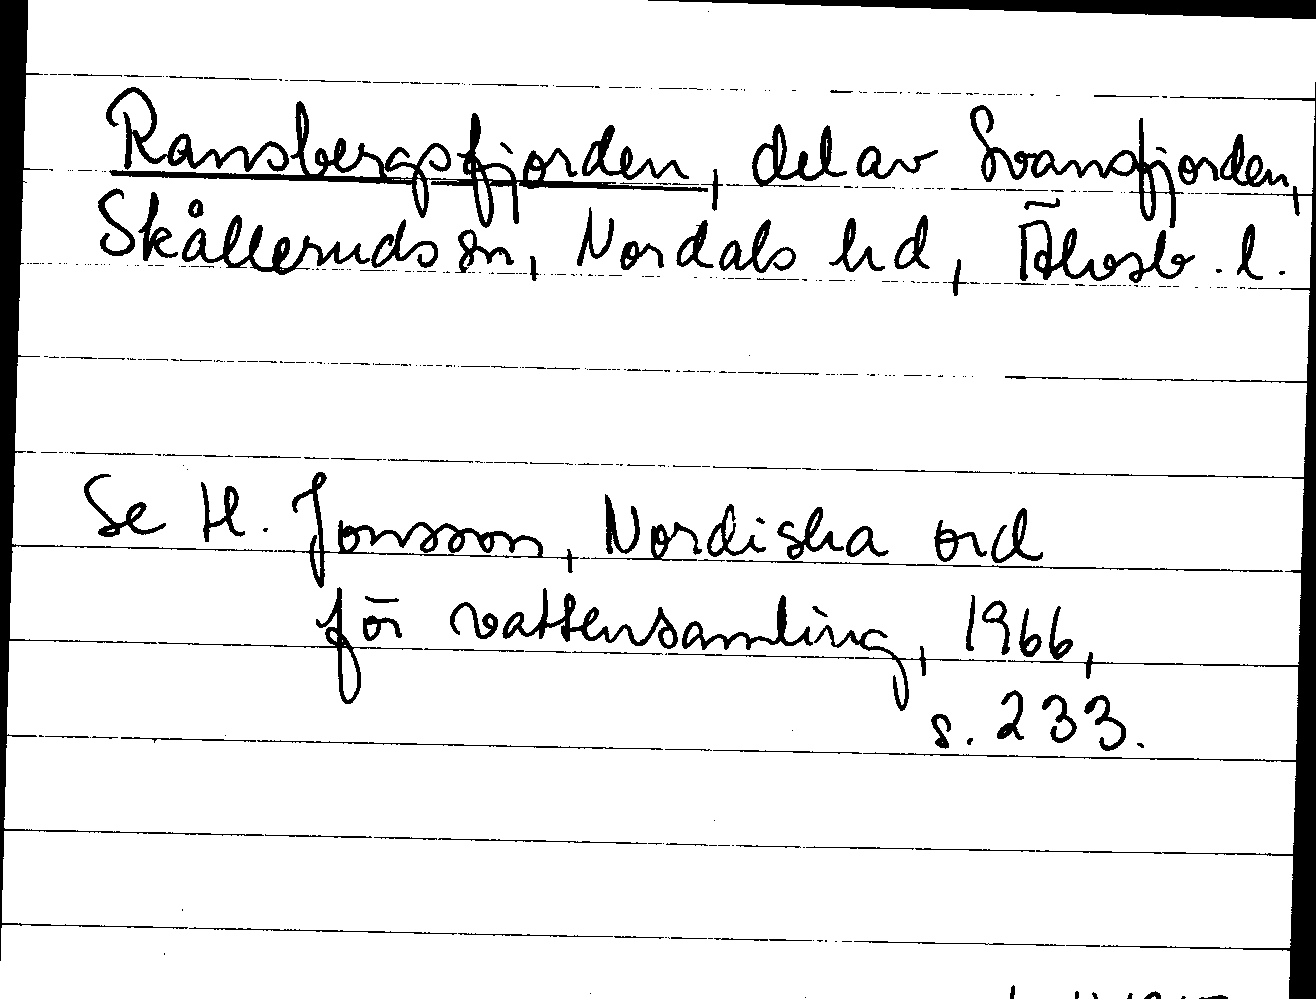 Ransbergsfjorden, del av Svansfjorden,
Skålleruds sn, Nordals hd, Älvsb. l.
Se H. Jonsson, Nordiska ord
för vattensamling, 1966,
s. 233.